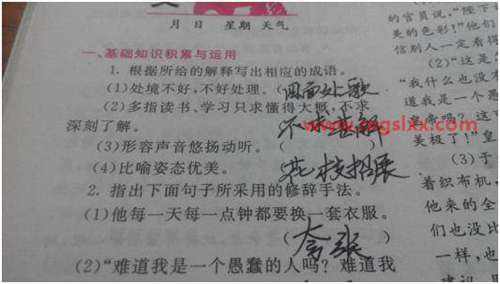 月 日 星期 天气
一、基础知识积累与运用
1. 根据所给的解释写出相应的成语。
(1)处境不好,不好处理。(四面处歌
(2)多指读书、学习只求懂得大概,不求
深刻了解。(不求甚解
(3)形容声音悠扬动听。(
(4)比喻姿态优美。(花枝招展
2. 指出下面句子所采用的修辞手法。
(1)他每一天每一点钟都要换一套衣服。
(夸张
(2)“难道我是一个愚蠢的人吗？难道我
的官员说,“陛下
美的色彩!”他们
信别人一定看得
(2)“这是
“我什么也没
道我是一个愚
皇帝吗?
美极了!”皇
(3)于
着织布机,
他来的全
们也没比
一样,也